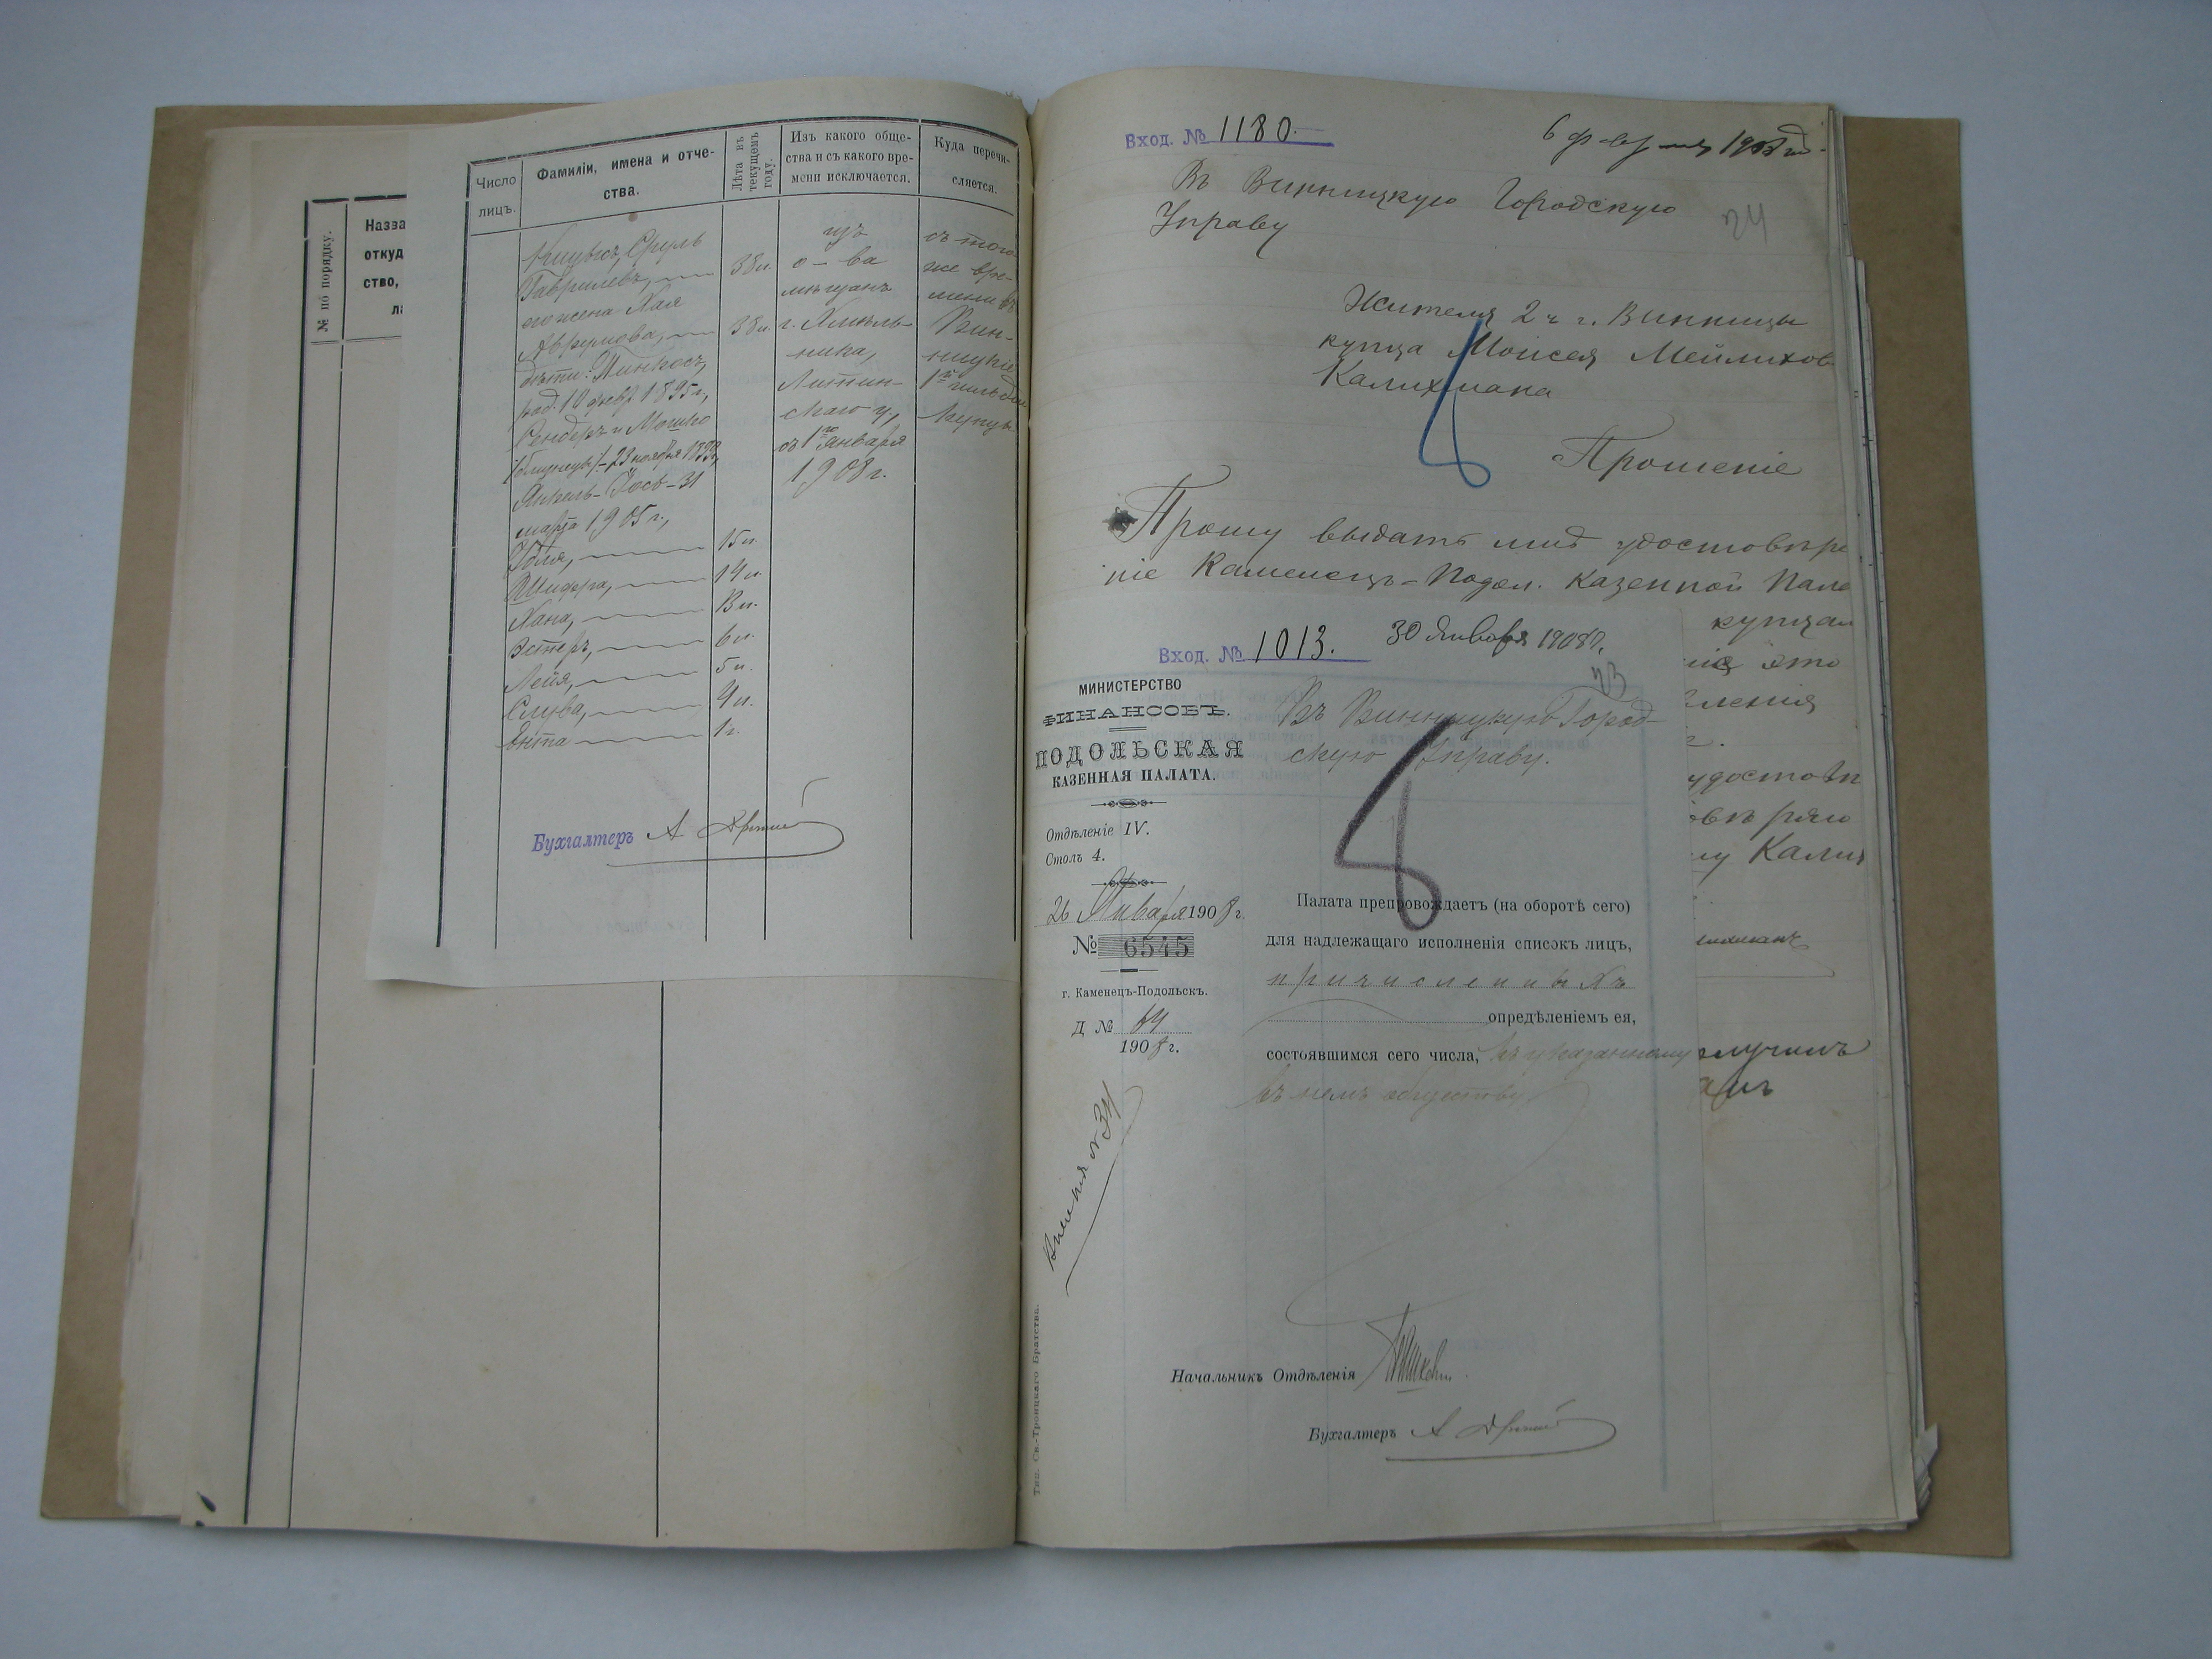 № по порядку.
Назва
откуд
ство,
ла
Число
лицъ.
Фамиліи, имена и отче-
ства.
Лѣта въ
текущемъ
году.
Изъ какого обще-
ства и съ какого вре-
мени исключается.
Куда перечи-
сляется.
Сруль
Гаврилевъ, 38 л.
его жена Хая
Аврумова, 38 л.
дѣти: Пинхосъ,
род. 10 февр. 1895 г.,
Сендеръ и Мошко
/близнецы/ - 23 ноября
Янкель-Іосъ - 31
марта 1905 г.,
15 л.
Шифра, 14 л.
Хана,
Эстеръ, 6 л.
Лейя, 5 л.
Слува, 4 л.
Ента 1 г.
изъ
о-ва
мѣщанъ
г. Хмѣль-
ника,
Литин-
скаго у.,
съ 1го января
1908 г.
съ того
же вре-
мени въ
Вин-
ницкіе
1й гильдіи
купцы.
Бухгалтеръ
Вход. № 1180.
6 февраля
Въ Винницкую Городскую
Управу
24
Жителя 2 ч г. Винницы
купца Моисея Мейлихов
Калихмана
Прошеніе
Прошу выдать мнѣ удостовѣре
ніе Каменецъ-Подол. Казенной Пала
купцам
это
ленія
г.
удостовѣ
овѣряю
му Калих
Вход. № 1013. 30 Января 1908 г.
23
МИНИСТЕРСТВО
ФИНАНСОВЪ.
ПОДОЛЬСКАЯ
КАЗЕННАЯ ПАЛАТА.
Отдѣленіе IV.
Столъ 4.
26 Января 1908 г.
№ 6545
г. Каменецъ-Подольскъ.
Д № 64
1908 г.
Въ Винницкую Город-
скую Управу.
Палата препровождаетъ (на оборотѣ сего)
для надлежащаго исполненія списокъ лицъ,
причисленныхъ
опредѣленіемъ ея,
состоявшимся сего числа, къ указанному
въ немъ обществу
олучилъ
Начальникъ Отдѣленія
Бухгалтеръ
Тип. Св.-Троицкаго Братства.